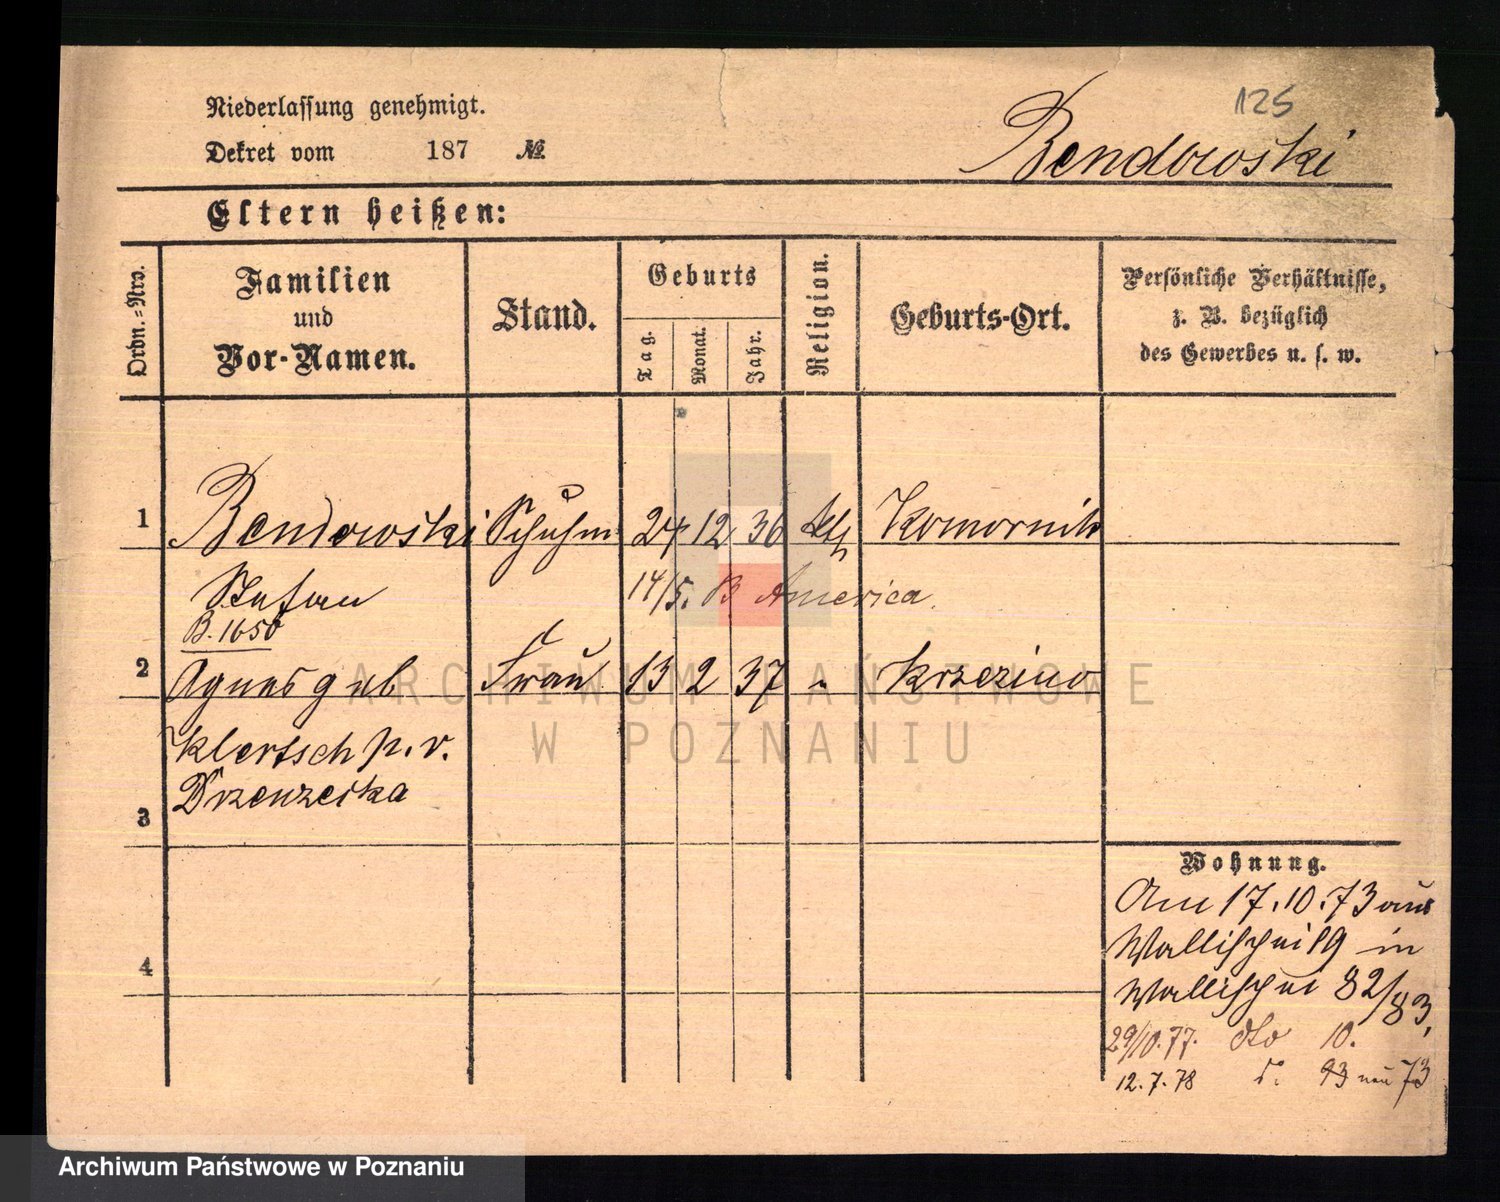 125
Niederlassung genehmigt.
Dekret vom 187 №
Bendowski
Eltern heißen:
Ordn.-Nro.
Familien
und
Vor-Namen.
Stand.
Geburts
Tag.
Monat.
Jahr.
Religion.
Geburts-Ort.
Persönliche Verhältnisse,
z. B. bezüglich
des Gewerbes u. s. w.
1 Bendowski Schuhm 24 12 36 kth Komornik
Stefan 14/5. B America.
B. 1650
2 Agnes geb Frau 13 2 37 " Krzezino
Klertsch p. v.
Drzenzerka
3
4
Wohnung.
Am 17.10.73 aus
Wallischei 19 in
Wallischei 82/83,
29/10.77. dto 10.
12.7.78 d. 93 neu 73
ARCHIWUM PAŃSTWOWE
W POZNANIU
Archiwum Państwowe w Poznaniu